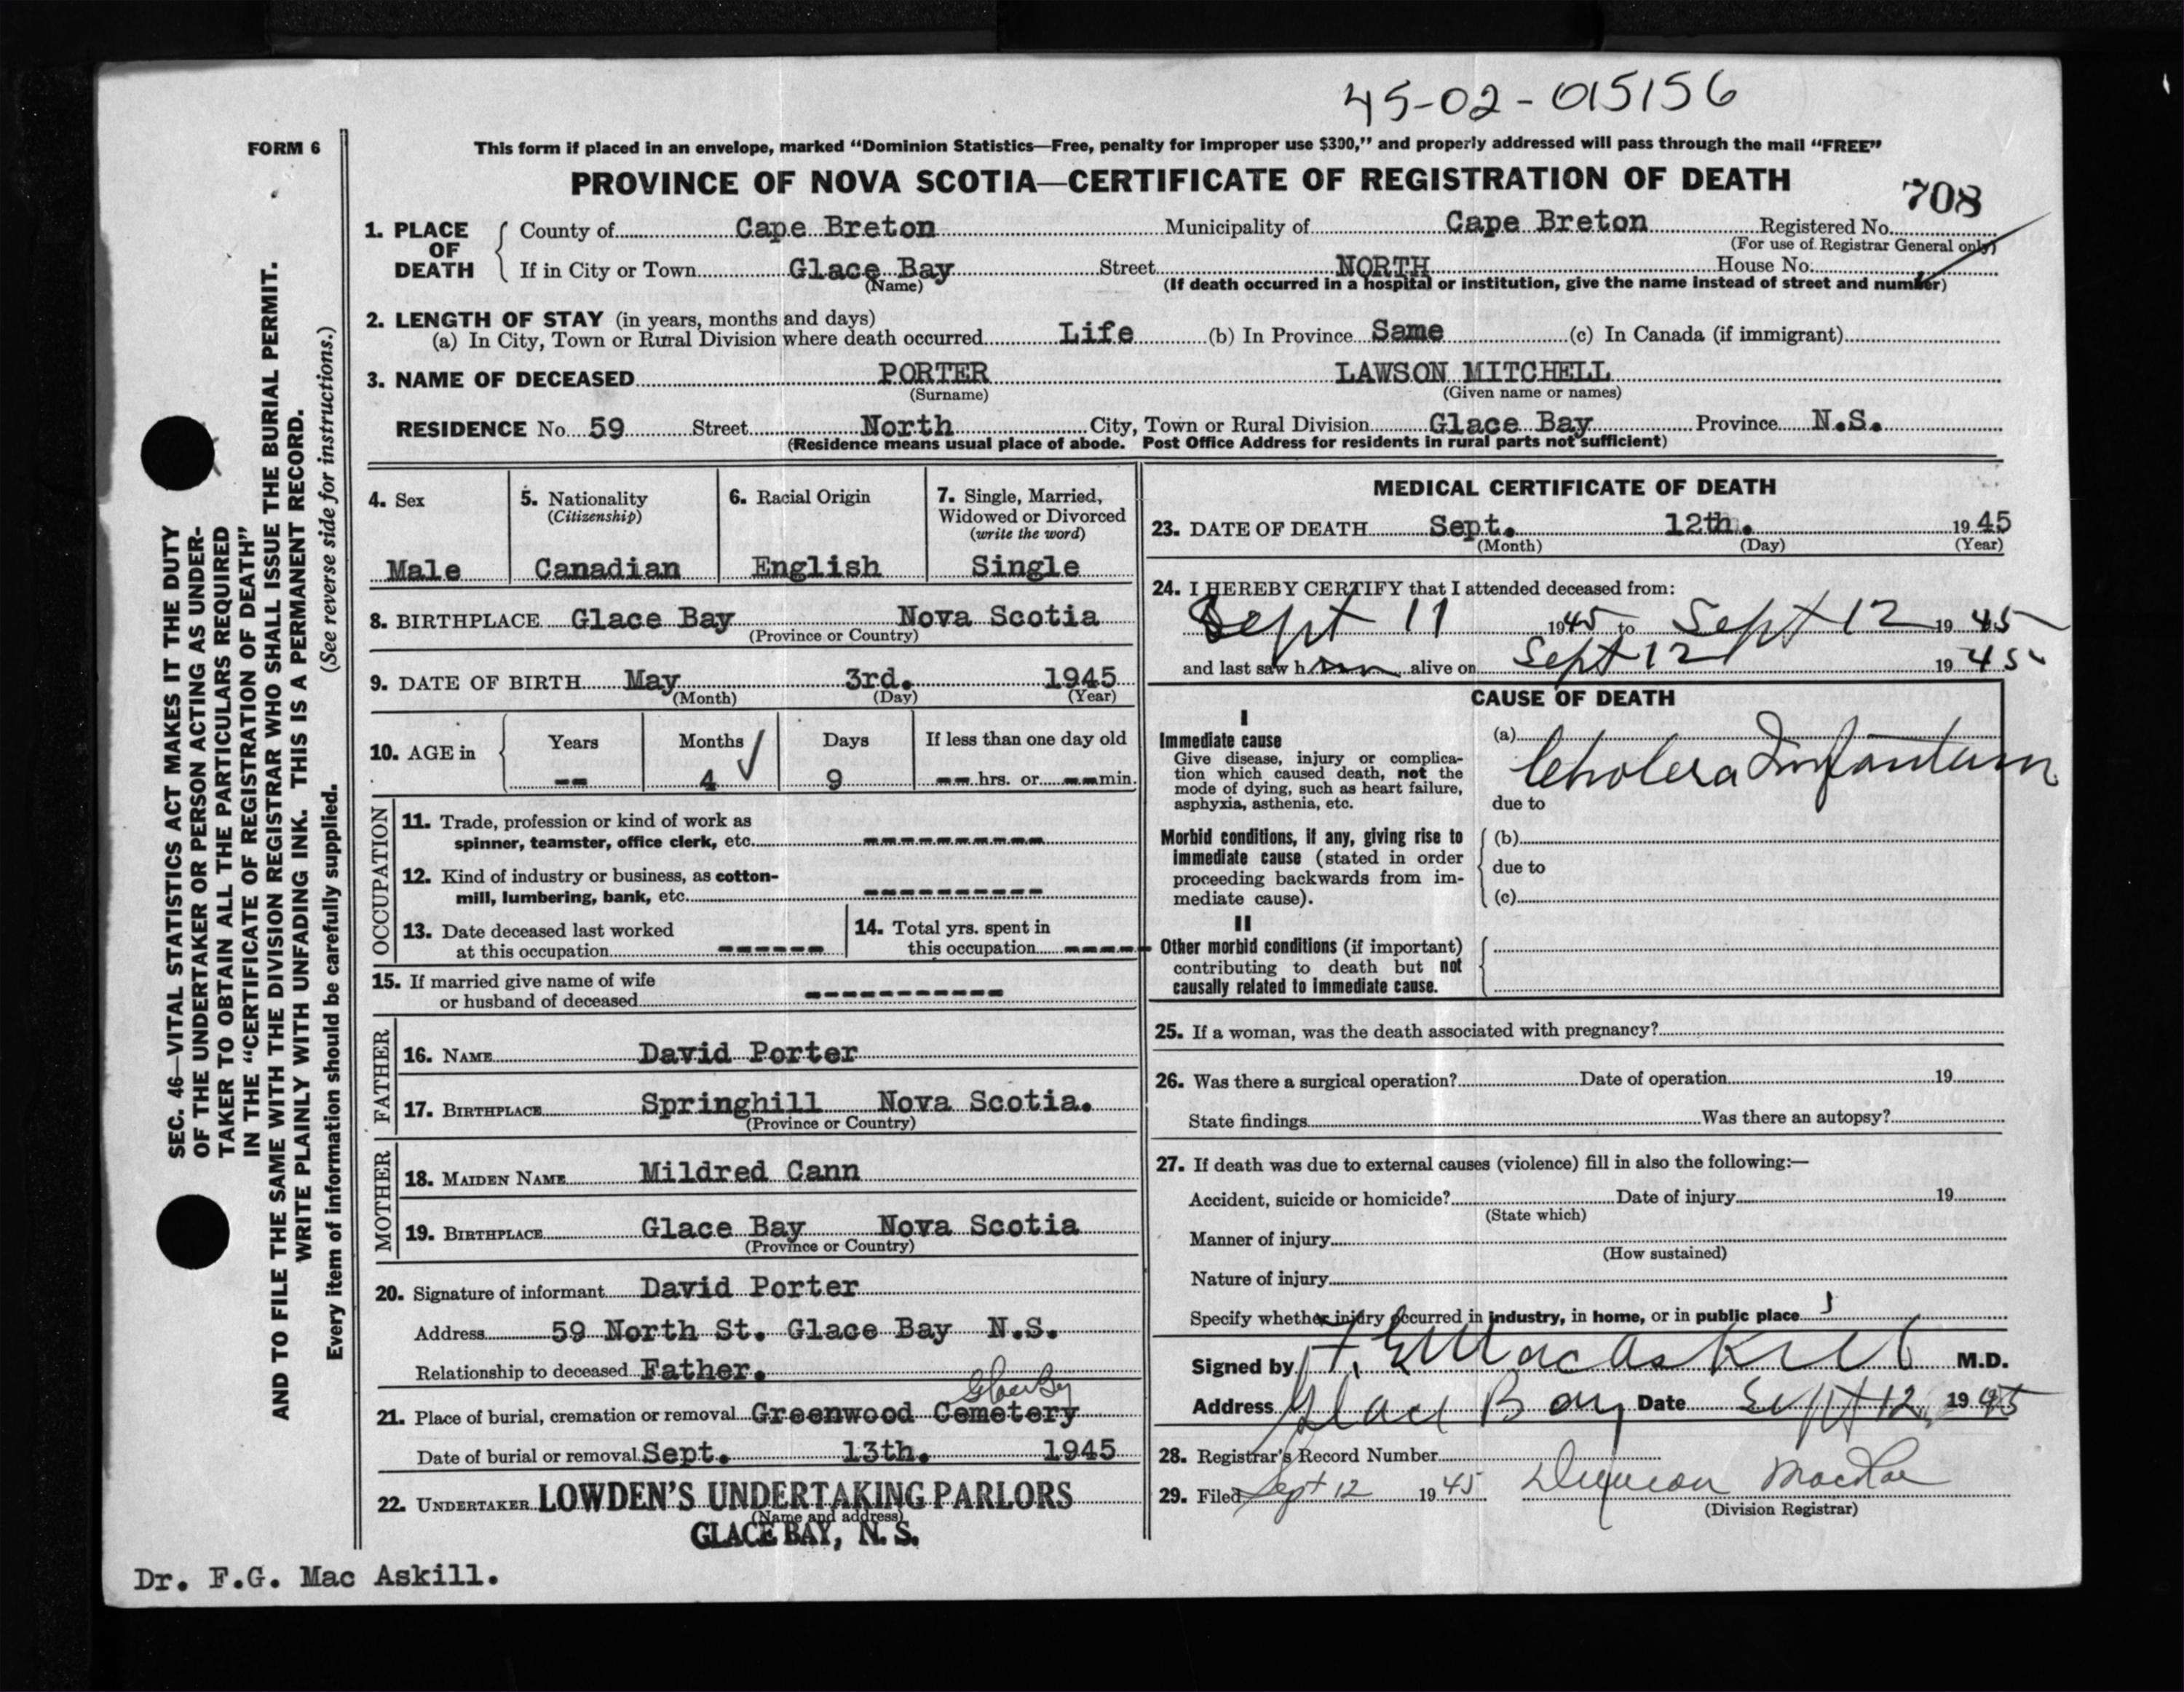 45-02-015156
FORM 6
This form if placed in an envelope, marked “Dominion Statistics—Free, penalty for improper use $300,” and properly addressed will pass through the mail “FREE”
PROVINCE OF NOVA SCOTIA—CERTIFICATE OF REGISTRATION OF DEATH
708
1. PLACE OF DEATH
County of Cape Breton Municipality of Cape Breton Registered No.
(For use of Registrar General only)
If in City or Town Glace Bay Street NORTH House No.
(Name) (If death occurred in a hospital or institution, give the name instead of street and number)
2. LENGTH OF STAY (in years, months and days)
(a) In City, Town or Rural Division where death occurred Life (b) In Province Same (c) In Canada (if immigrant)
3. NAME OF DECEASED PORTER LAWSON MITCHELL
(Surname) (Given name or names)
RESIDENCE No. 59 Street North City, Town or Rural Division Glace Bay Province N.S.
(Residence means usual place of abode. Post Office Address for residents in rural parts not sufficient)
4. Sex
Male
5. Nationality
(Citizenship)
Canadian
6. Racial Origin
English
7. Single, Married,
Widowed or Divorced
(write the word)
Single
8. BIRTHPLACE Glace Bay Nova Scotia
(Province or Country)
9. DATE OF BIRTH May 3rd. 1945
(Month) (Day) (Year)
10. AGE in Years Months Days If less than one day old
-- 4 9 -- hrs. or -- min.
OCCUPATION
11. Trade, profession or kind of work as
spinner, teamster, office clerk, etc. ----------
12. Kind of industry or business, as cotton-
mill, lumbering, bank, etc. ----------
13. Date deceased last worked
at this occupation ------
14. Total yrs. spent in
this occupation -----
15. If married give name of wife
or husband of deceased -----------
FATHER
16. NAME David Porter
17. BIRTHPLACE Springhill Nova Scotia.
(Province or Country)
MOTHER
18. MAIDEN NAME Mildred Cann
19. BIRTHPLACE Glace Bay Nova Scotia
(Province or Country)
20. Signature of informant David Porter
Address 59 North St. Glace Bay N.S.
Relationship to deceased Father.
Glace Bay
21. Place of burial, cremation or removal Greenwood Cemetery
Date of burial or removal Sept. 13th. 1945
22. UNDERTAKER LOWDEN'S UNDERTAKING PARLORS
(Name and address)
GLACE BAY, N. S.
MEDICAL CERTIFICATE OF DEATH
23. DATE OF DEATH Sept. 12th. 1945
(Month) (Day) (Year)
24. I HEREBY CERTIFY that I attended deceased from:
Sept 11 1945 to Sept 12 19 45
and last saw h im alive on Sept 12 19 45
CAUSE OF DEATH
I
Immediate cause
Give disease, injury or complica-
tion which caused death, not the
mode of dying, such as heart failure,
asphyxia, asthenia, etc.
(a) Cholera Infantum
due to
Morbid conditions, if any, giving rise to
immediate cause (stated in order
proceeding backwards from im-
mediate cause).
(b)
due to
(c)
II
Other morbid conditions (if important)
contributing to death but not
causally related to immediate cause.
25. If a woman, was the death associated with pregnancy?
26. Was there a surgical operation? Date of operation 19
State findings Was there an autopsy?
27. If death was due to external causes (violence) fill in also the following:—
Accident, suicide or homicide? Date of injury 19
(State which)
Manner of injury
(How sustained)
Nature of injury
Specify whether injury occurred in industry, in home, or in public place
Signed by F. G MacAskill M.D.
Address Glace Bay Date Sept 12 1945
28. Registrar's Record Number
29. Filed Sept 12 1945 Duncan MacRae
(Division Registrar)
Dr. F.G. Mac Askill.
SEC. 46—VITAL STATISTICS ACT MAKES IT THE DUTY
OF THE UNDERTAKER OR PERSON ACTING AS UNDER-
TAKER TO OBTAIN ALL THE PARTICULARS REQUIRED
IN THE “CERTIFICATE OF REGISTRATION OF DEATH”
AND TO FILE THE SAME WITH THE DIVISION REGISTRAR WHO SHALL ISSUE THE BURIAL PERMIT.
WRITE PLAINLY WITH UNFADING INK. THIS IS A PERMANENT RECORD.
Every item of information should be carefully supplied. (See reverse side for instructions.)